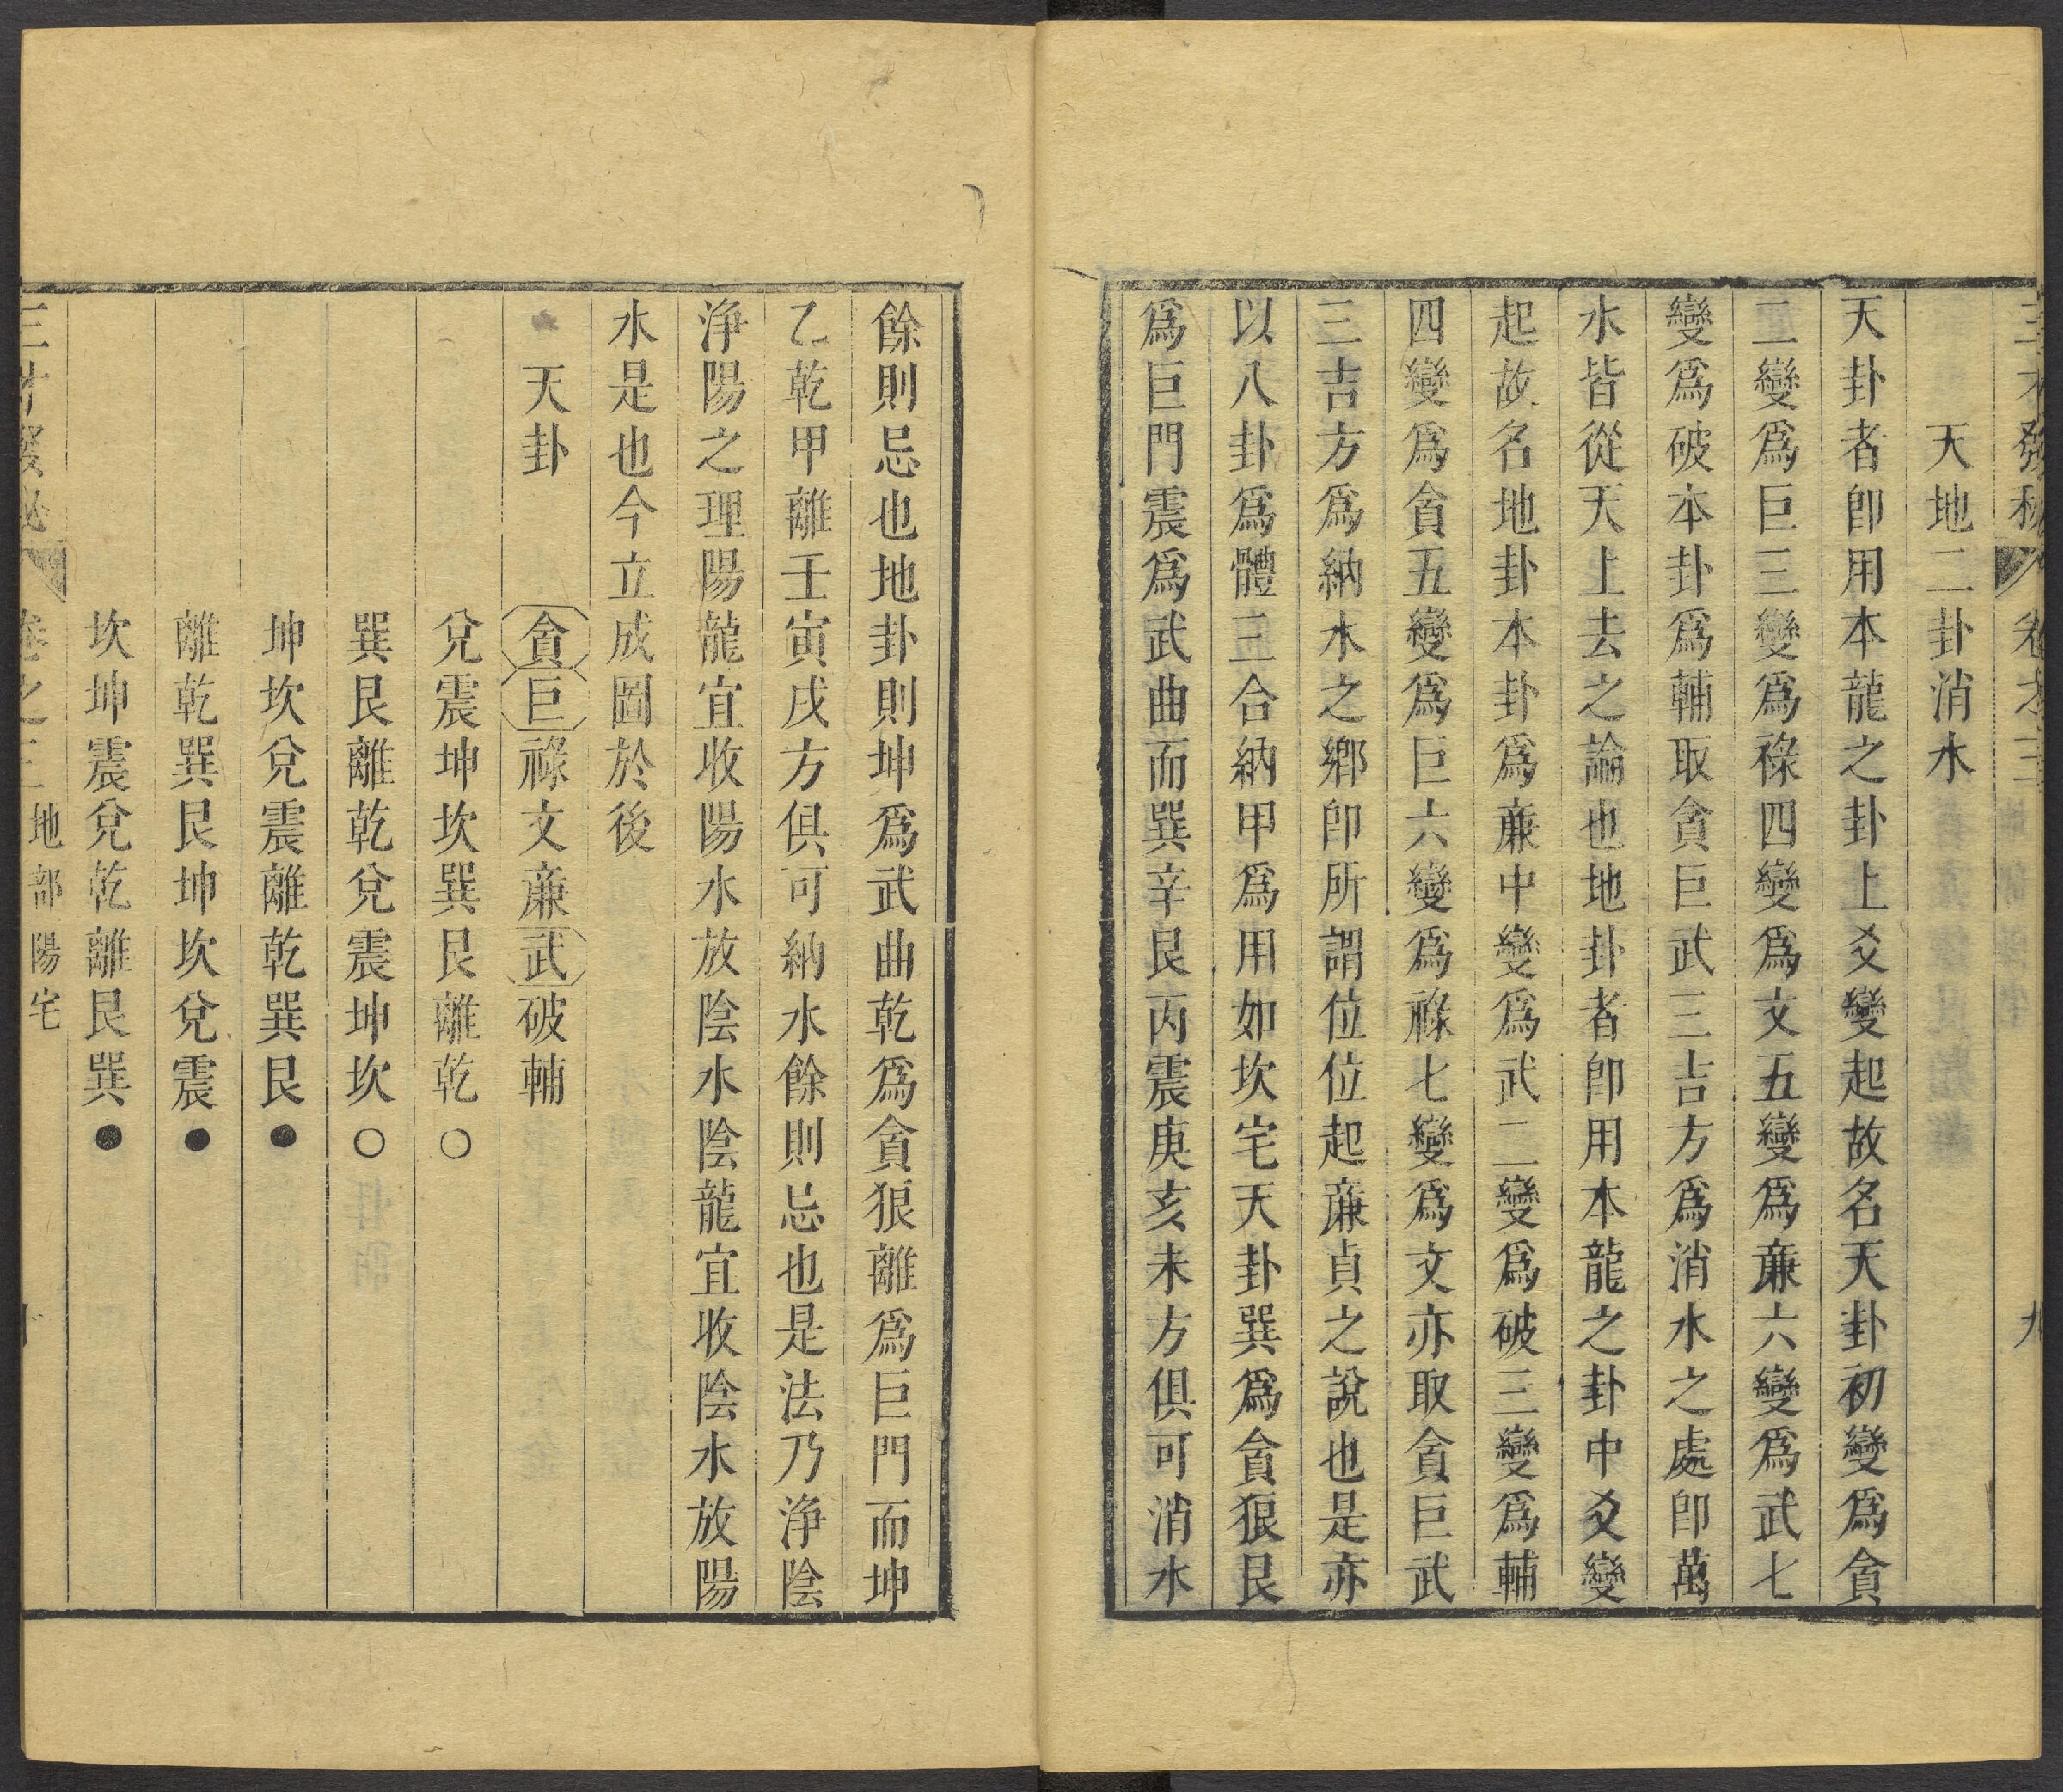 三才發秘 卷之三 九
天地二卦消水
天卦者即用本龍之卦上爻變起故名天卦初變爲貪
二變爲巨三變爲祿四變爲文五變爲亷六變爲武七
變爲破本卦爲輔取貪巨武三吉方爲消水之處即萬
水皆從天上去之論也地卦者即用本龍之卦中爻變
起故名地卦本卦爲亷中變爲武二變爲破三變爲輔
四變爲貪五變爲巨六變爲祿七變爲文亦取貪巨武
三吉方爲納水之鄉即所謂位位起亷貞之說也是亦
以八卦爲體三合納甲爲用如坎宅天卦巽爲貪狼艮
爲巨門震爲武曲而巽辛艮丙震庚亥未方俱可消水
餘則忌也地卦則坤爲武曲乾爲貪狼離爲巨門而坤
乙乾甲離壬寅戌方俱可納水餘則忌也是法乃浄陰
浄陽之理陽龍宜收陽水放陰水陰龍宜收陰水放陽
水是也今立成圖於後
天卦 貪巨祿文亷武破輔
兌震坤坎巽艮離乾○
巽艮離乾兌震坤坎○
坤坎兌震離乾巽艮●
離乾巽艮坤坎兌震●
坎坤震兌乾離艮巽●
三才發祕 卷之三 地部陽宅